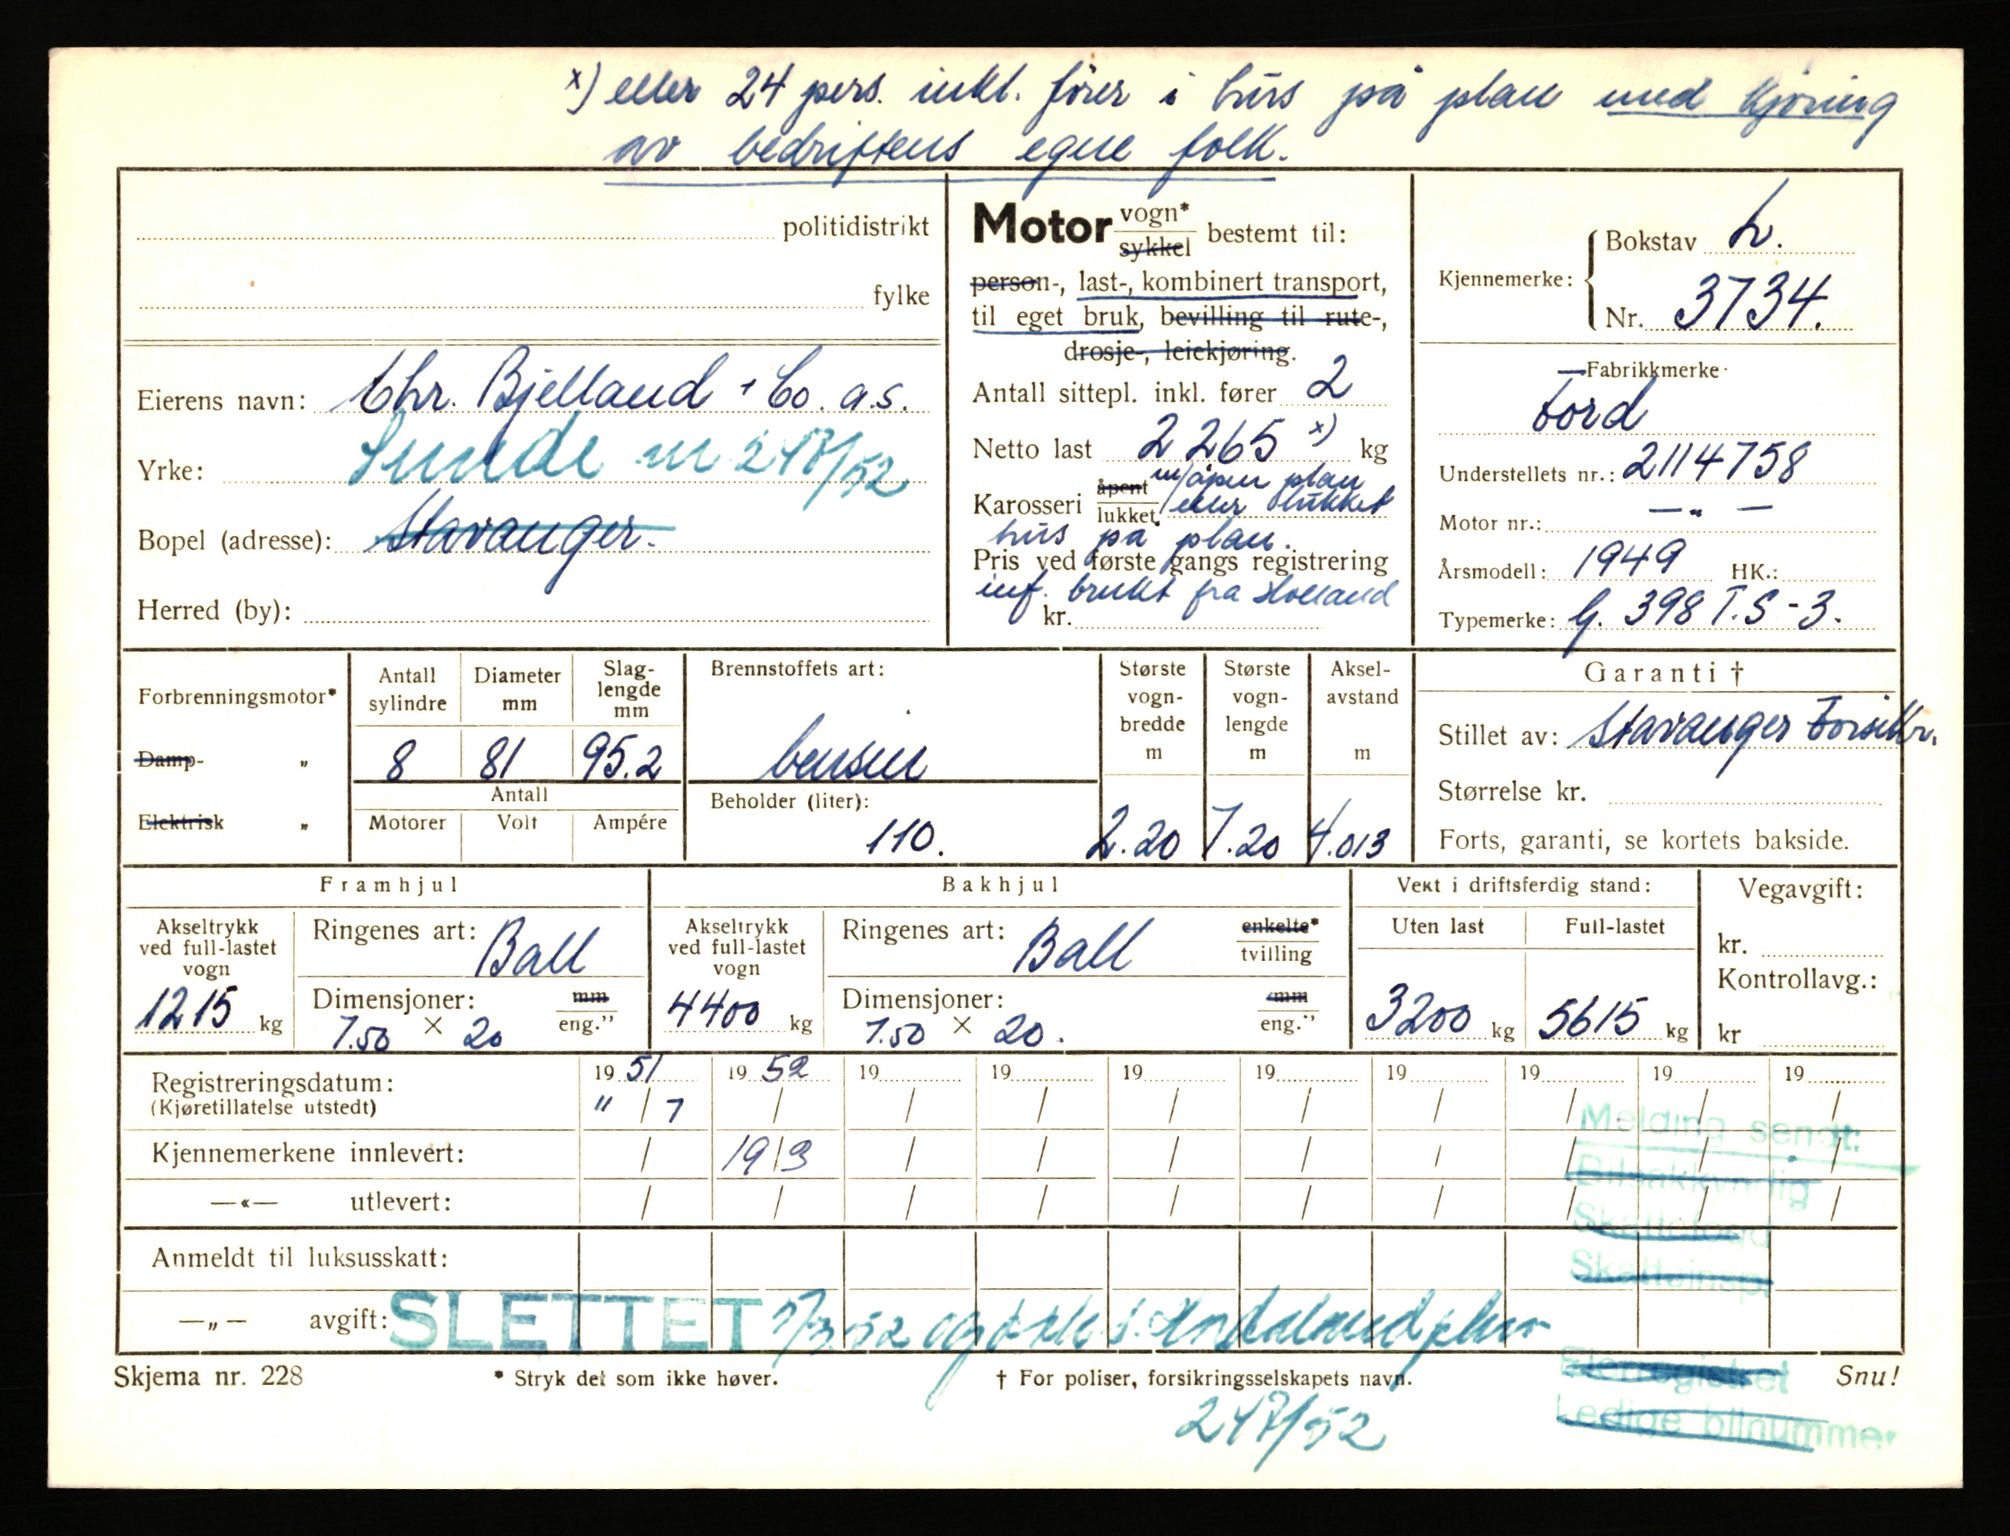 x) eller 24 pers. inkl. fører i hus på plan med kjøring
av bedriftens egne folk.
politidistrikt
fylke
Eierens navn: Chr. Bjelland + Co. a.s.
Yrke: Sunde m 247/52
Bopel (adresse): Stavanger.
Herred (by):
Motor vogn* sykkel bestemt til:
person-, last-, kombinert transport,
til eget bruk, bevilling til rute-,
drosje-, leiekjøring.
Antall sittepl. inkl. fører 2
Netto last 2265 x) kg
Karosseri åpent lukket. m/åpen plan eller lukket
hus på plan.
Pris ved første gangs registrering
inf. brukt fra Holland
kr.
Kjennemerke: Bokstav L.
Nr. 3734.
Fabrikkmerke
Ford
Understellets nr.: 2114758
Motor nr.: — " —
Årsmodell: 1949 HK.:
Typemerke: G. 398 T.S-3.
Forbrenningsmotor*
Damp- "
Elektrisk "
Antall sylindre 8
Diameter mm 81
Slag-lengde mm 95.2
Antall
Motorer Volt Ampére
Brennstoffets art:
bensin
Beholder (liter):
110.
Største vogn-bredde m 2.20
Største vogn-lengde m 7.20
Aksel-avstand m 4.013
Garanti †
Stillet av: Stavanger Forsikr.
Størrelse kr.
Forts, garanti, se kortets bakside.
Framhjul
Akseltrykk ved full-lastet vogn 1215 kg
Ringenes art: Ball
Dimensjoner: mm eng."
7.50 × 20
Bakhjul
Akseltrykk ved full-lastet vogn 4400 kg
Ringenes art: Ball enkelte* tvilling
Dimensjoner: mm eng."
7.50 × 20.
Vekt i driftsferdig stand:
Uten last 3200 kg
Full-lastet 5615 kg
Vegavgift:
kr.
Kontrollavg.:
kr
Registreringsdatum: 19 51 19 52 19 19 19 19 19 19 19 19
(Kjøretillatelse utstedt) " / 7 / / / / / / / / /
Kjennemerkene innlevert: / 19/3 / / / / / / / /
—«— utlevert: / / / / / / / / / /
Anmeldt til luksusskatt:
—„— avgift: SLETTET
Melding sendt:
Bilsakkyndig
Skattefogd
Skatteinsp.
Eierregistret
Ledige bilnummer
Skjema nr. 228
* Stryk det som ikke høver.
† For poliser, forsikringsselskapets navn.
Snu!
247/52